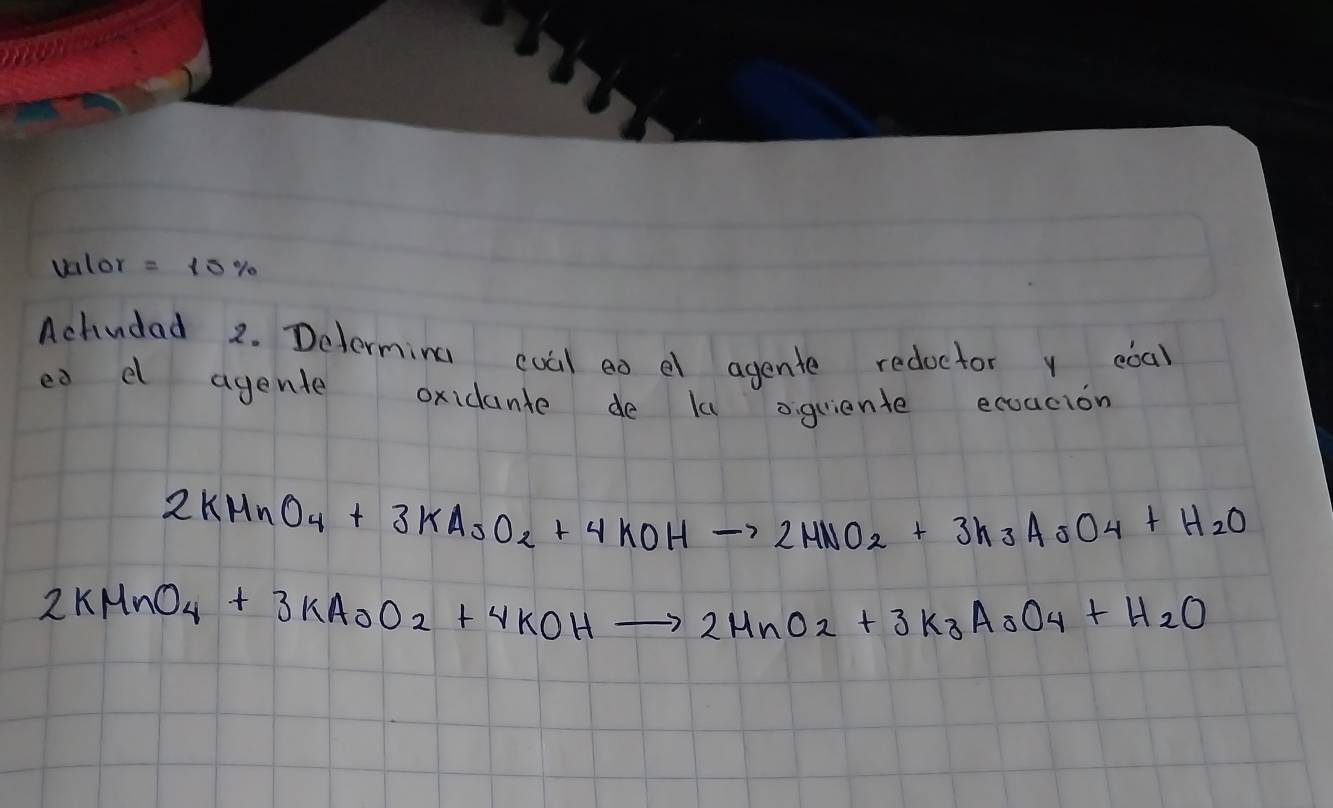 Valor = 10%
Actividad 2. Determina cuál es el agente reductor y cúal
es el agente oxidante de la siguiente ecuación
2KMnO₄ + 3KAsO₂ + 4KOH → 2MNO₂ + 3K₃AsO₄ + H₂O
2KMnO₄ + 3KAsO₂ + 4KOH → 2MnO₂ + 3K₃AsO₄ + H₂O